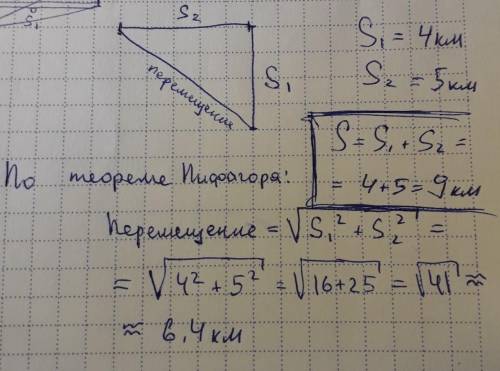 S₁
S₂
S₁
перемещение
S₁ = 4км
S₂ = 5км
S = S₁ + S₂ =
= 4+5 = 9 км
По теореме Пифагора:
Перемещение = √S₁² + S₂² =
= √4² + 5² = √16+25 = √41 ≈
≈ 6,4 км